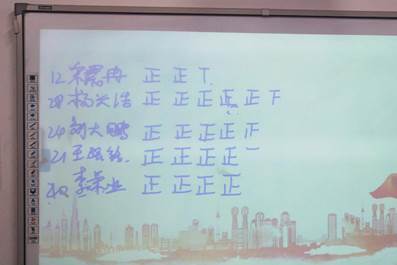 12 冉 正 正 丅
28 杨兴浩 正 正 正 正 正 下
24 刘大鹏 正 正 正 正 正
21 王 正 正 正 正 一
李荣业 正 正 正 正